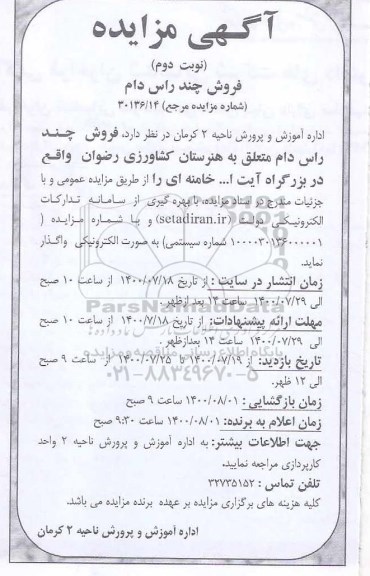 آگهی مزایده
(نوبت دوم)
فروش چند راس دام
(شماره مزایده مرجع ۳۰۱۳۶/۱۴)
اداره آموزش و پرورش ناحیه ۲ کرمان در نظر دارد، فروش چند
راس دام متعلق به هنرستان کشاورزی رضوان واقع
در بزرگراه آیت ا... خامنه ای را از طریق مزایده عمومی و با
جزئیات مندرج در اسناد مزایده، با بهره گیری از سامانه تدارکات
الکترونیکی دولت (setadiran.ir) و با شماره مزایده (
شماره سیستمی) به صورت الکترونیکی واگذار
نماید.
زمان انتشار در سایت: از تاریخ ۱۴۰۰/۰۷/۱۸ از ساعت ۱۰ صبح
الی ۱۴۰۰/۰۷/۲۹ ساعت ۱۴ بعد ازظهر.
مهلت ارائه پیشنهادات: از تاریخ ۱۴۰۰/۷/۱۸ از ساعت ۱۰ صبح
الی ۱۴۰۰/۰۷/۲۹ ساعت ۱۴ بعدازظهر.
تاریخ بازدید: از ۱۴۰۰/۰۷/۱۹ تا ۱۴۰۰/۰۷/۲۵ از ساعت ۹ صبح
الی ۱۲ ظهر.
زمان بازگشایی: ۱۴۰۰/۰۸/۰۱ ساعت ۹ صبح
زمان اعلام به برنده: ۱۴۰۰/۰۸/۰۱ ساعت ۹:۳۰ صبح
جهت اطلاعات بیشتر: به اداره آموزش و پرورش ناحیه ۲ واحد
کارپردازی مراجعه نمایید.
تلفن تماس: ۳۲۷۳۵۱۵۲
کلیه هزینه های برگزاری مزایده بر عهده برنده مزایده می باشد.
اداره آموزش و پرورش ناحیه ۲ کرمان
ParsNamadData
۰۲۱-۸۸۳۴۹۶۷۰-۵